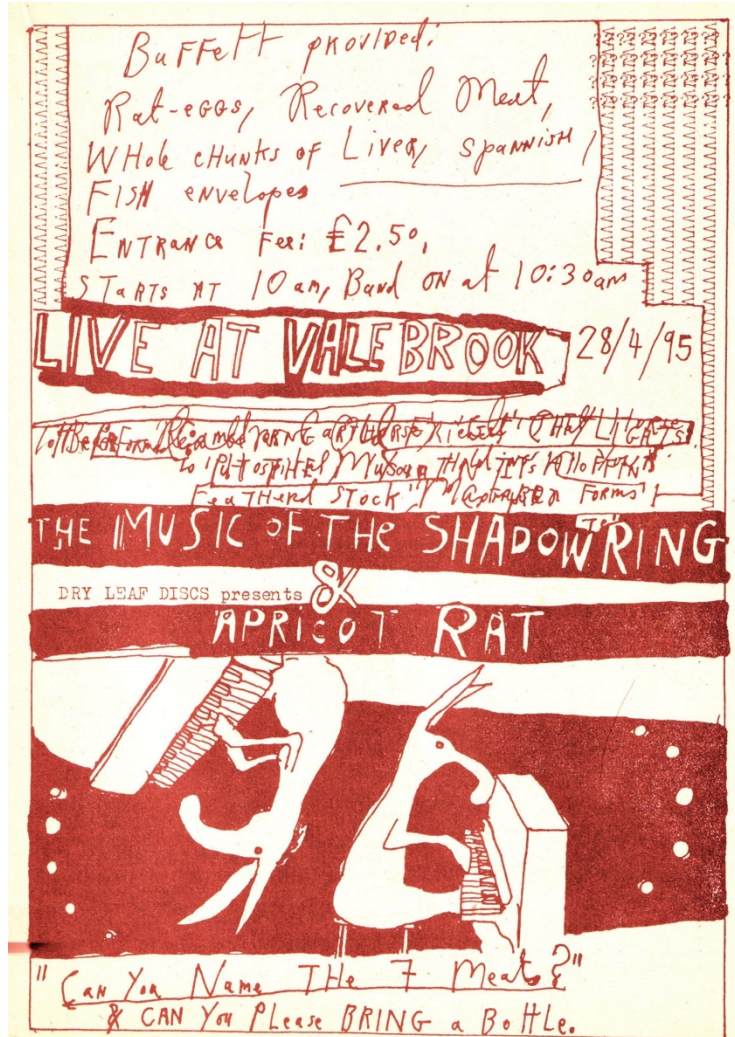 Buffett provided:
Rat-eggs, Recovered Meat,
Whole chunks of Liver, Spannish
Fish envelopes
Entrance Fee: £2.50,
Starts at 10am, Band on at 10:30am
LIVE AT VALEBROOK 28/4/95
To Be Performed
Feathered Stock Forms
THE MUSIC OF THE SHADOW RING
DRY LEAF DISCS presents &
APRICOT RAT
"Can You Name THe 7 Meats?"
& CAN You PLease BRING a BoTTLe.